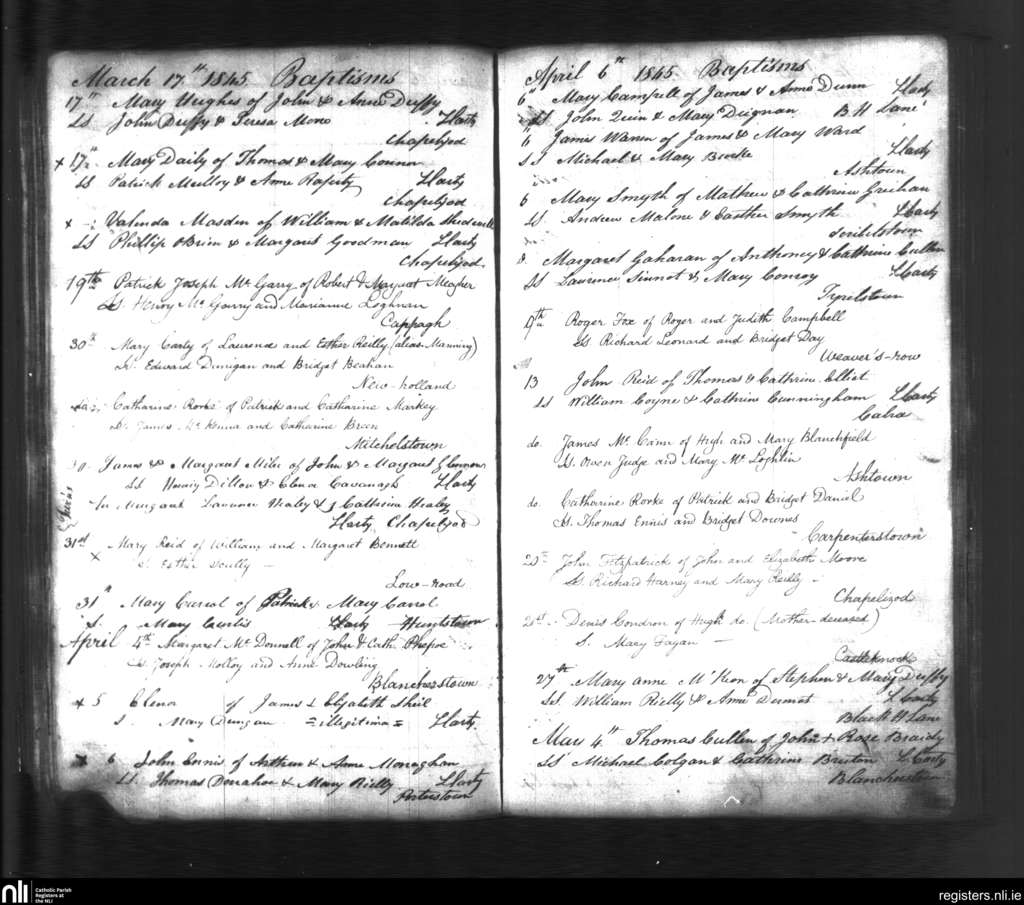 March 17th 1845 Baptisms
17th Mary Hughes of John & Anne Duffy
SS John Duffy & Teresa Moore
Chapelizod
x 17th Mary Daily of Thomas & Mary Connor
SS Patrick Mulloy & Anne Raferty
Chapelizod
x Valenda Masden of William & Matilda
SS Phillip OBrien & Margaret Goodman
Chapelizod
19th Patrick Joseph Mc Garry of Robert & Margret Meagher
Ss Henry Mc Garry and Marianne Loghnan
Cappagh
30th Mary Carty of Laurence and Esther Reilly (alias Manning)
Ss. Edward Dunigan and Bridget Beahan
New-holland
Catharine Rorke of Patrick and Catharine Markey
Ss. James Mc Kenna and Catharine Breen
Mitchelstown
30 James & Margaret Miles of John & Margaret
SS Henry Dillon & Elenor Cavanagh
Twins
for Margaret Laurence Healey & Catherine Healey
Chapelizod
31st Mary Reid of William and Margaret Bennett
x S. Esther Scully
Low-road
31st Mary Carrol of Patrick & Mary Carrol
S. Mary Curtis
April 4th Margaret Mc Donnell of John & Cath.
Ss Joseph Molloy and Anne Dowling
Blancherstown
x 5 Elenor of James & Elizabeth Sheil
S. Mary Dunigan = illegitima =
x 6 John Ennis of Arthur & Anne Monaghan
SS. Thomas Donahoe & Mary Rielly
Porterstown
April 6th 1845 Baptisms
6th Mary Campell of James & Anne Dunn
SS John Quin & Mary Duignan B.H Lane
6 James Warren of James & Mary Ward
SS Michael & Mary Burke
Ashtown
6 Mary Smyth of Mathew & Cathrine
SS Andrew Malone & Easther Smyth
8. Margaret Gaharan of Anthoney & Cathrine Cullen
SS Laurence Sinnot & Mary Conroy
Tyrelstown
9th Roger Fox of Roger and Judith Campbell
Ss Richard Leonard and Bridget Day
Weaver's-row
13 John Reid of Thomas & Cathrine Elliot
SS William Coyne & Cathrine Cunningham
Cabra
do. James Mc Cann of Hugh and Mary Blanchfield
Ss. Owen Judge and Mary Mc Loghlin
Ashtown
do. Catharine Rorke of Patrick and Bridget Daniel
Ss. Thomas Ennis and Bridget Downes
Carpenterstown
20th John Fitzpatrick of John and Elizabeth Moore
Ss. Richard Harney and Mary Reilly
Chapelizod
21st Denis Condron of Hugh do. (Mother deceased)
S. Mary Fagan
Castleknock
27th Mary anne M'Keon of Stephen & Mary Duffy
SS. William Rielly & Anne Dermot
Black H Lane
May 4th Thomas Cullen of John & Rose Braidy
SS Michael Colgan & Cathrine Bruton
Blancherstown
nli
Catholic Parish
Registers at
the NLI
registers.nli.ie